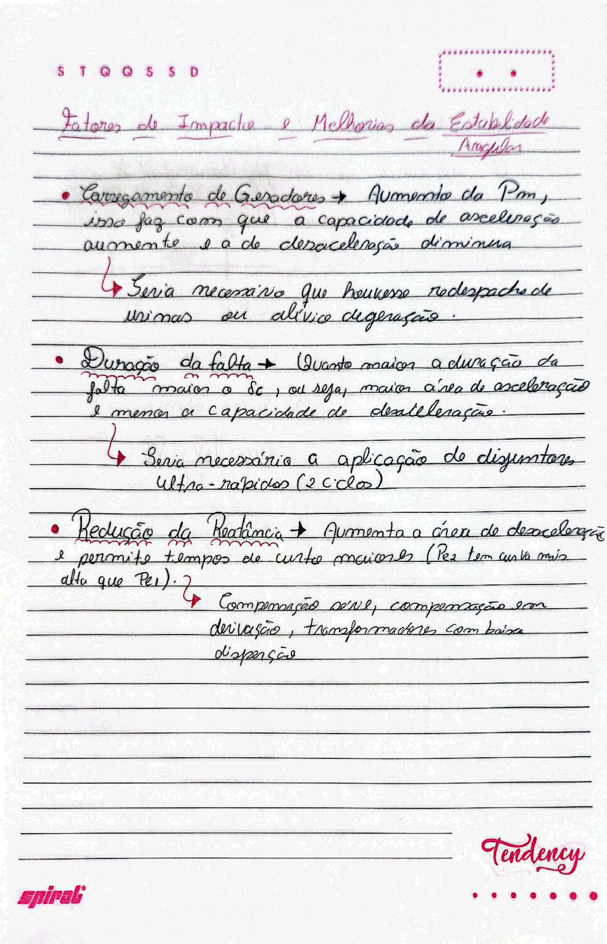 S T Q Q S S D
Fatores de Impacto e Melhorias da Estabilidade
Angular
• Carregamento de Geradores → Aumento da Pm,
isso faz com que a capacidade de asceleração
aumente e a de desaceleração diminua
Seria necessário que houvesse redespacho de
usinas ou alívio de geração.
• Duração da falta → Quanto maior a duração da
falta maior o δc, ou seja, maior área de asceleração
e menor a capacidade de desaceleração.
Seria necessário a aplicação de disjuntores
ultra-rápidos (2 ciclos)
• Redução da Reatância → Aumenta a área de desaceleração
e permite tempos de curto maiores (Pe2 tem curva mais
alta que Pe1).
Compensação série, compensação em
derivação, transformadores com baixa
disperção
Tendency
spiral